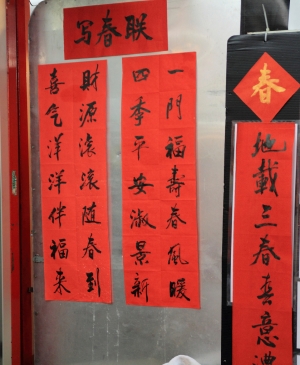 写春联
一門福壽春風暖
四季平安淑景新
財源滚滚随春到
喜气洋洋伴福来
春
地載三春喜意濃